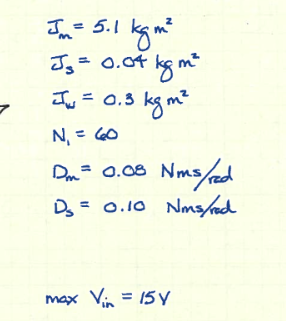 Jm = 5.1 kg m²
Js = 0.04 kg m²
Jw = 0.3 kg m²
N, = 60
Dm = 0.08 Nms/rad
Ds = 0.10 Nms/rad
max Vin = 15V